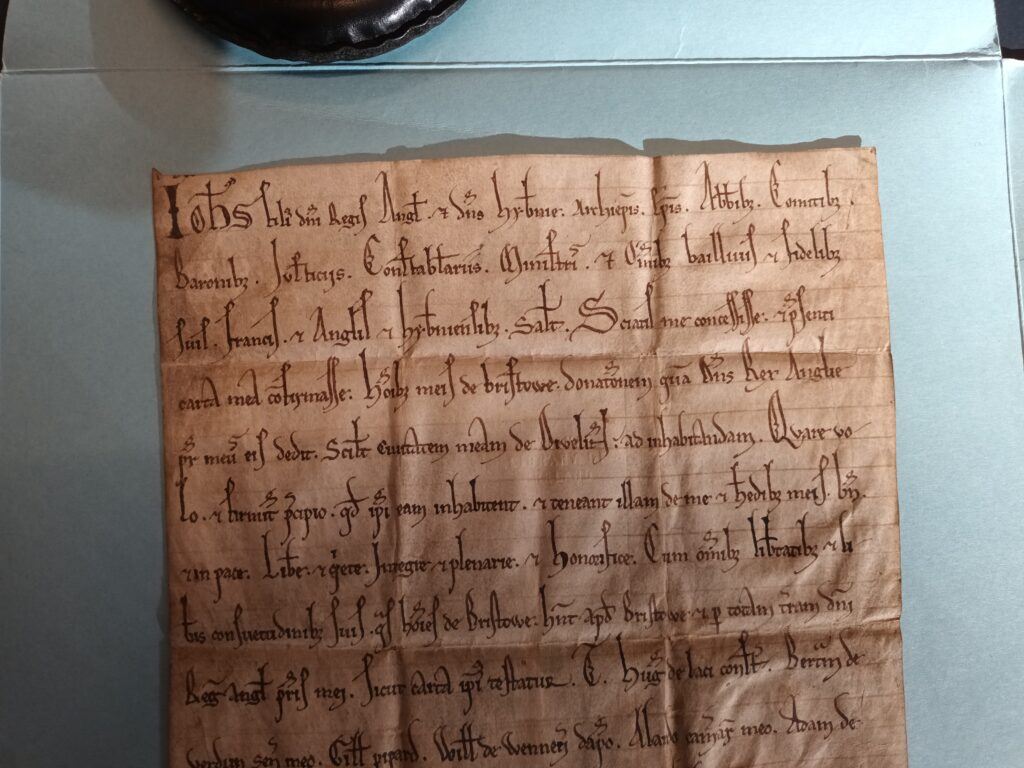 Ioħs fili' dn̄i Regis Angl' . ⁊ dn̄s hyb'nie . Archiep̄is . Ep̄is . Abb'ibȝ . Comitibȝ .
Baronibȝ . Justiciis . Constab'lariis . Ministris . ⁊ Om̄ibȝ baillivis ⁊ fidelibȝ
suis . francis . ⁊ Anglis ⁊ hyb'niensibȝ . Sal't . Sciatis me concessisse . ⁊ p'senti
carta mea c̄firmasse . Ho'ibȝ meis de bristowe . donatōnem quā Dn̄s Rex Anglie
pr̄ meus eis dedit . Scil't civitatem meam de ad inhabitandam . Quare vo
lo . ⁊ firmit' p'cipio . q'd ip̄i eam inhabitent . ⁊ teneant illam de me ⁊ h'edibȝ meis . bn̄ .
⁊ in pace . Lib'e . ⁊ q'ete . Integre ⁊ plenarie . ⁊ Honorifice . Cum om̄ibȝ lib'tatibȝ ⁊ li
b'is consuetudinibȝ suis . q's ho'ies de Bristowe . hn̄t ap'd Bristowe ⁊ p totam t'ram dn̄i
Reg' Angl' pr̄is mei . sicut carta ip̄i' testatur . T . Hug' de laci const' . Bert'm de
verdun sen' meo . Gill' pipard . Will' de dap'o . camar' meo . Adam de